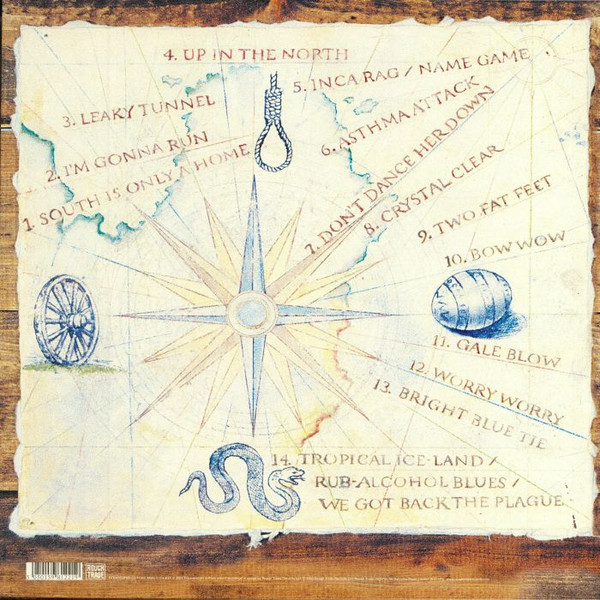 4. UP IN THE NORTH
5. INCA RAG / NAME GAME
3. LEAKY TUNNEL
6. ASTHMA ATTACK
2. I'M GONNA RUN
7. DON'T DANCE HER DOWN
1. SOUTH IS ONLY A HOME
8. CRYSTAL CLEAR
9. TWO FAT FEET
10. BOW WOW
11. GALE BLOW
12. WORRY WORRY
13. BRIGHT BLUE TIE
14. TROPICAL ICE-LAND /
RUB-ALCOHOL BLUES /
WE GOT BACK THE PLAGUE
ROUGH
TRADE